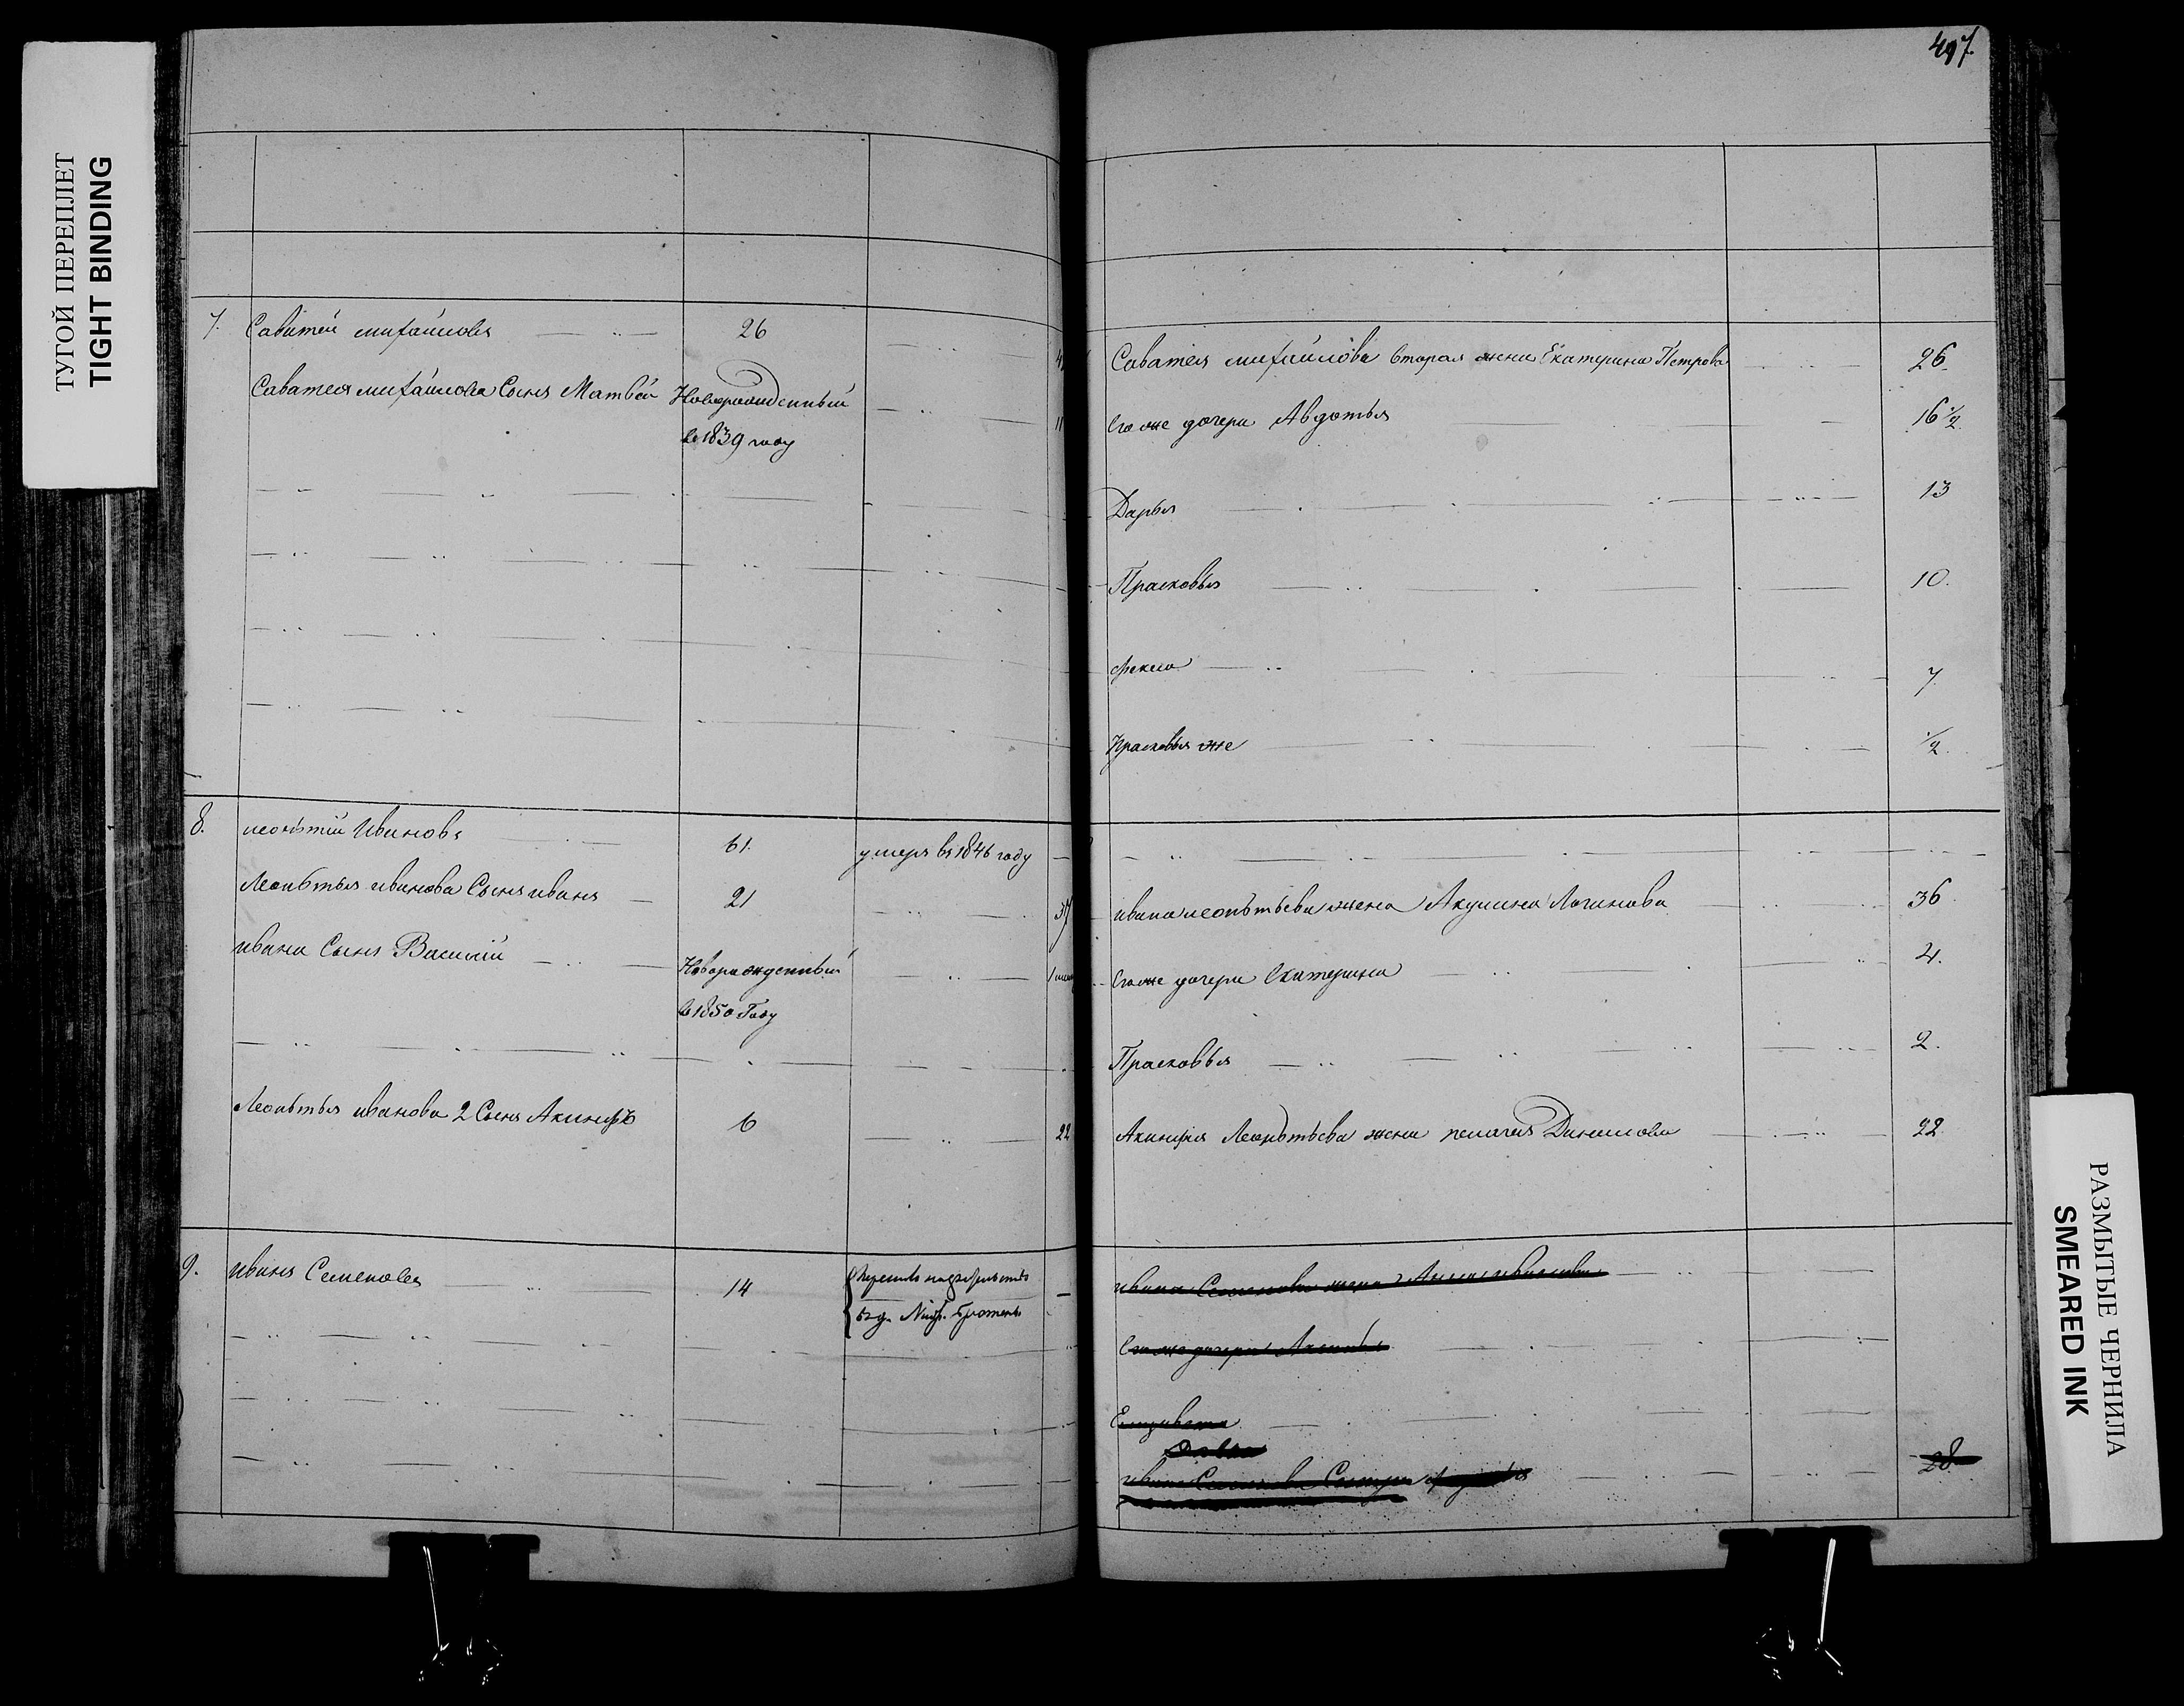 ТУГОЙ ПЕРЕПЛЕТ
TIGHT BINDING
7. Саватей михайловъ 26
Саватея михайлова Сынъ Матвѣй Новорожденный
в 1839 году 11
8. леонтий Ивановъ 61. умеръ въ 1846 году
Леонтья иванова Сынъ иванъ 21 37
ивана Сынъ Василий Новорожденный
в 1850 Году
Леонтья иванова 2 Сынъ Акинфъ 6 22
9. иванъ Семеновъ 14
497.
Саватея михайлова вторая жена Екатерина Петрова 26.
Его же дочери Авдотья 16 1/2
Дарья 13
Прасковья 10.
Фекла 7
Прасковья же 1/2.
ивана леонтьева жена Акулина Логинова 36
Его же дочери Екатерина 4.
Прасковья 2.
Акинфия Леонтьева жена пелагея Данилова 22
ивана Семенова жена
Его же дочери
Елизавета
ивана Семенова 28
РАЗМЫТЫЕ ЧЕРНИЛА
SMEARED INK